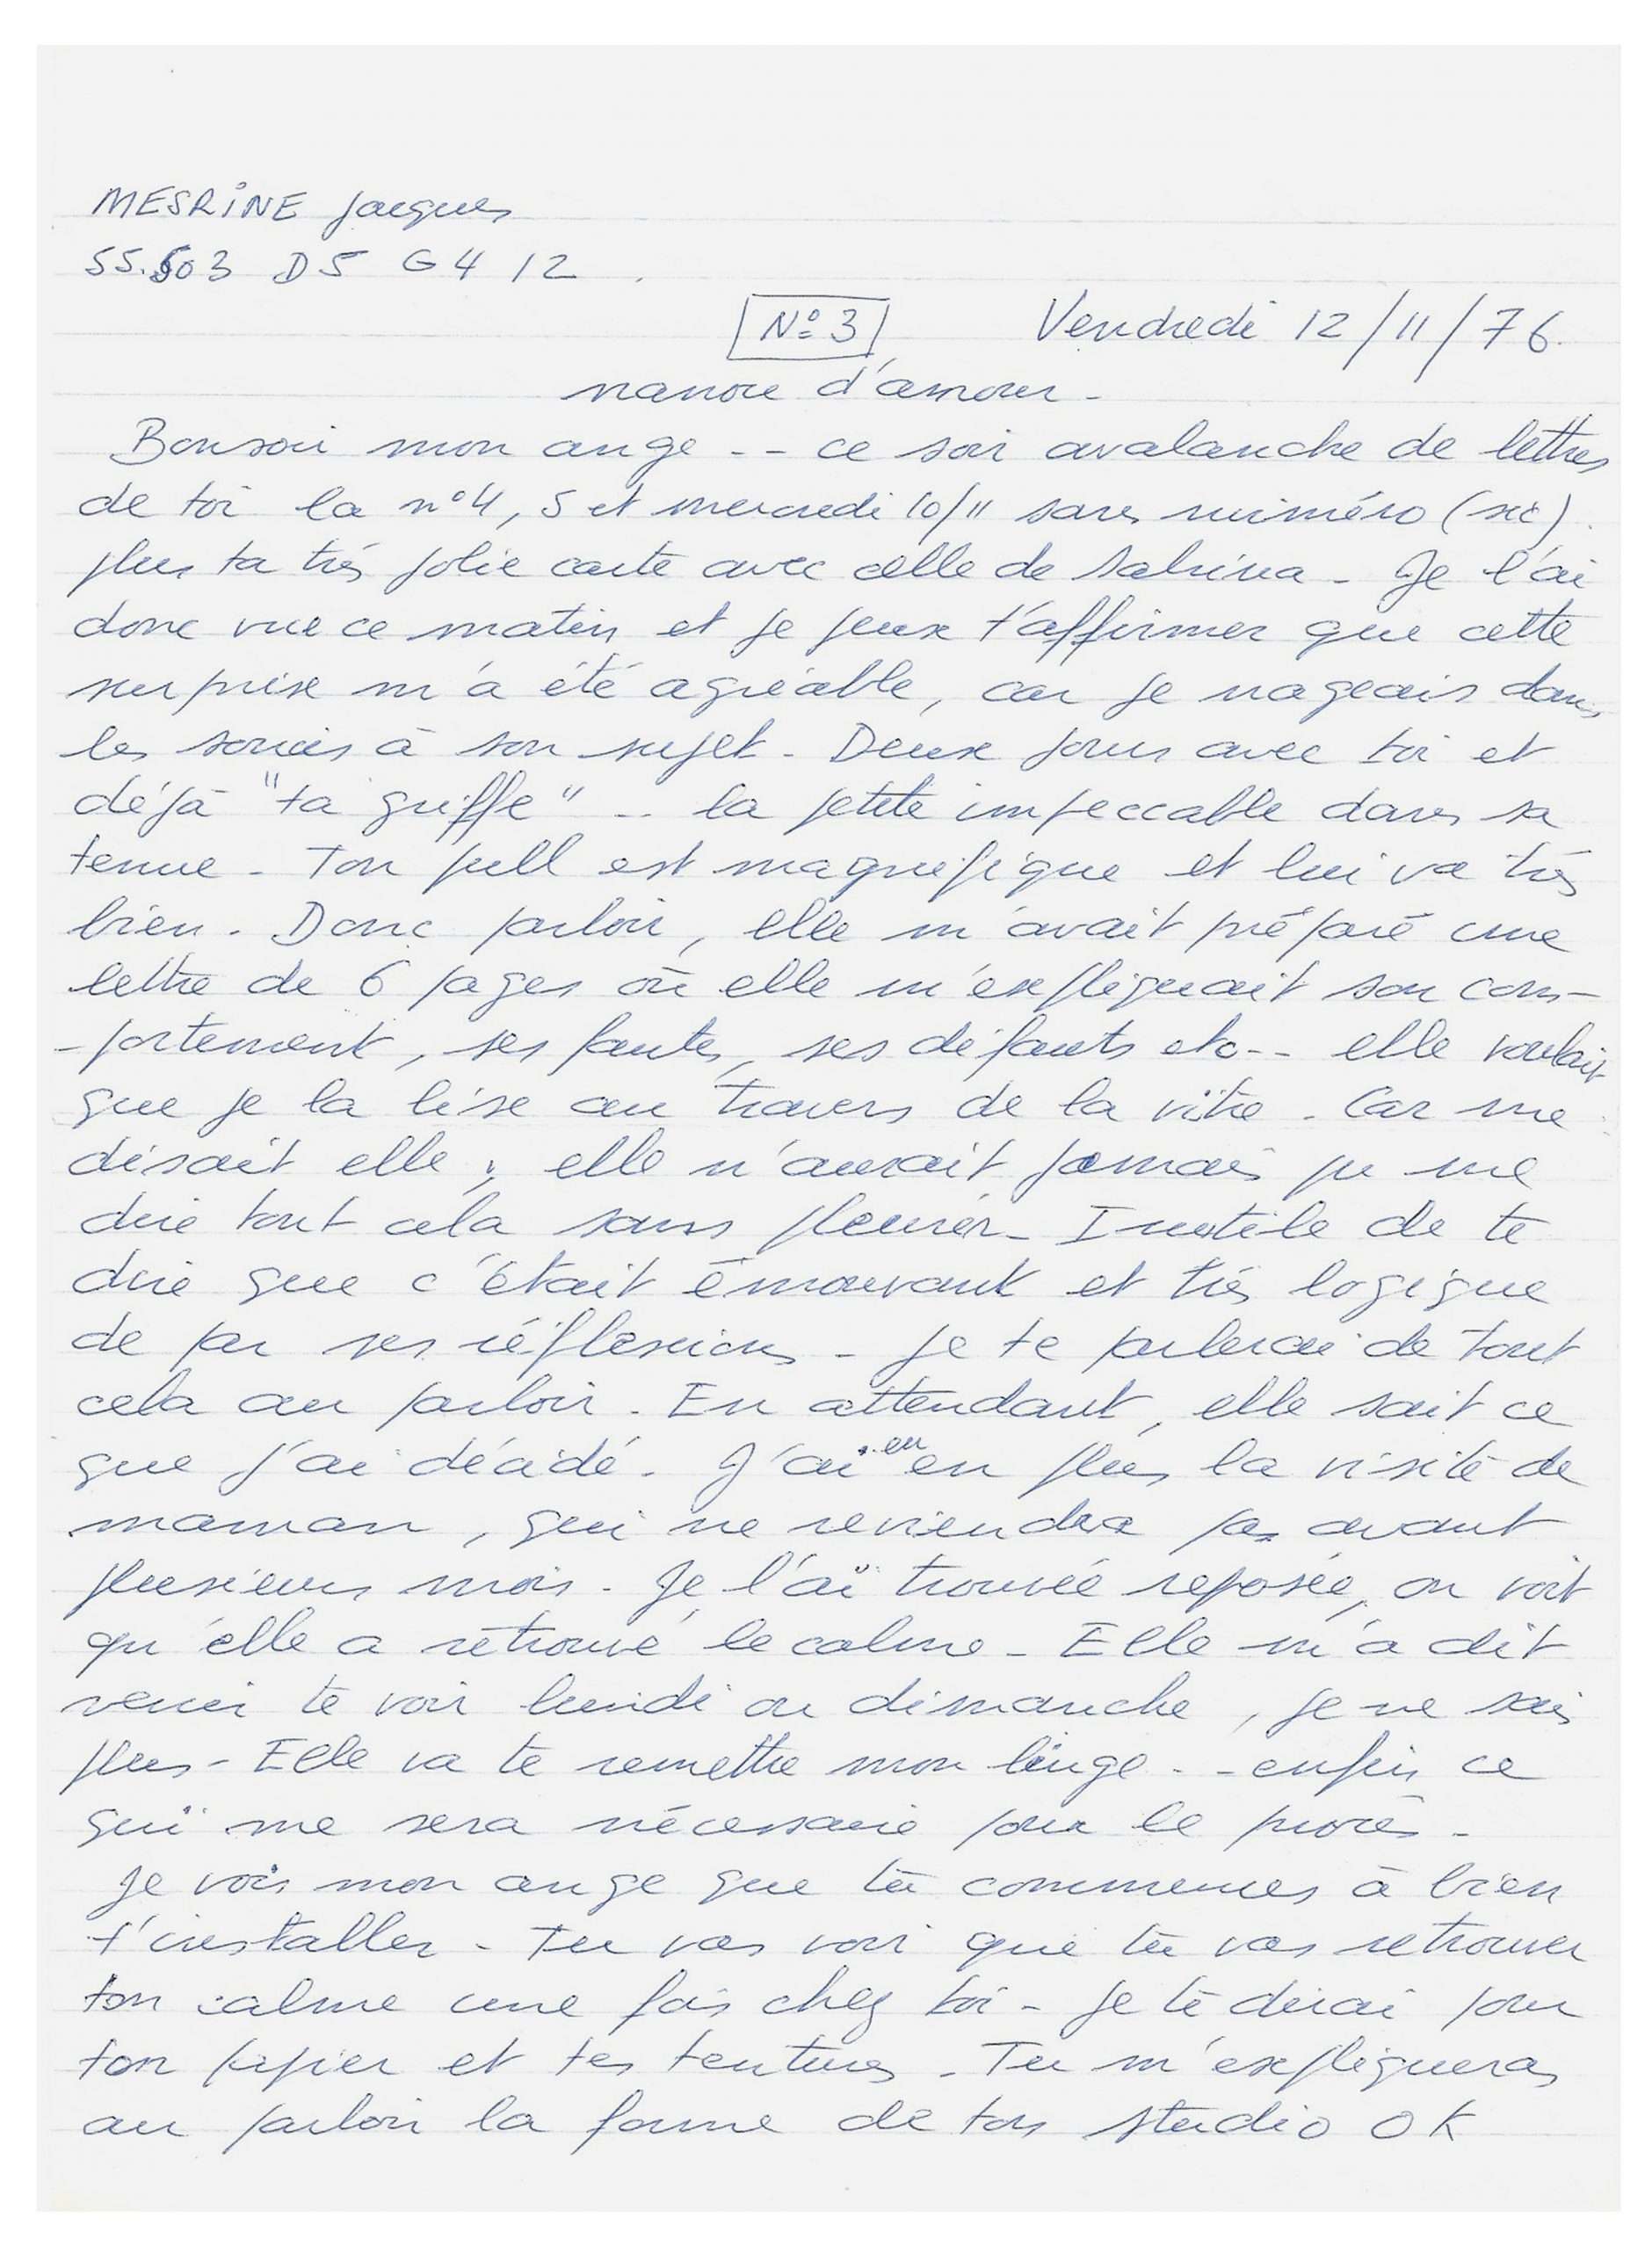 MESRiNE Jacques
55.503 D5 G4 12
N° 3 Vendredi 12/11/76.
nanou d'amour -
Bonsoir mon ange -- ce soir avalanche de lettres
de toi la n°4, 5 et mercredi 10/11 sans numéro (sic).
plus ta très jolie carte avec celle de Sabrina - Je l'ai
donc vue ce matin et je peux t'affirmer que cette
surprise m'a été agréable, car je nageais dans
les soucis à son sujet - Deux jours avec toi et
déjà "ta griffe" -- la petite impeccable dans sa
tenue - Ton pull est magnifique et lui va très
bien. Donc parloir, elle m'avait préparé une
lettre de 6 pages où elle m'expliquait son com-
-portement, ses fautes, ses défauts etc-- elle voulait
que je la lise au travers de la vitre. Car me
disait elle, elle n'aurait jamais pu me
dire tout cela sans pleurer - Inutile de te
dire que c'était émouvant et très logique
de par ses réflexions - Je te parlerai de tout
cela au parloir. En attendant, elle sait ce
que j'ai décidé. J'ai eu en plus la visite de
maman, qui ne reviendra pas avant
plusieurs mois. Je l'ai trouvée reposée, on voit
qu'elle a retrouvé le calme - Elle m'a dit
venir te voir lundi ou dimanche, je ne sais
plus - Elle va te remettre mon linge -- enfin ce
qui me sera nécessaire pour le procès -
Je vois mon ange que tu commences à bien
t'installer - Tu vas voir que tu vas retrouver
ton calme une fois chez toi - Je te dirai pour
ton papier et tes tentures - Tu m'expliqueras
au parloir la forme de ton studio OK